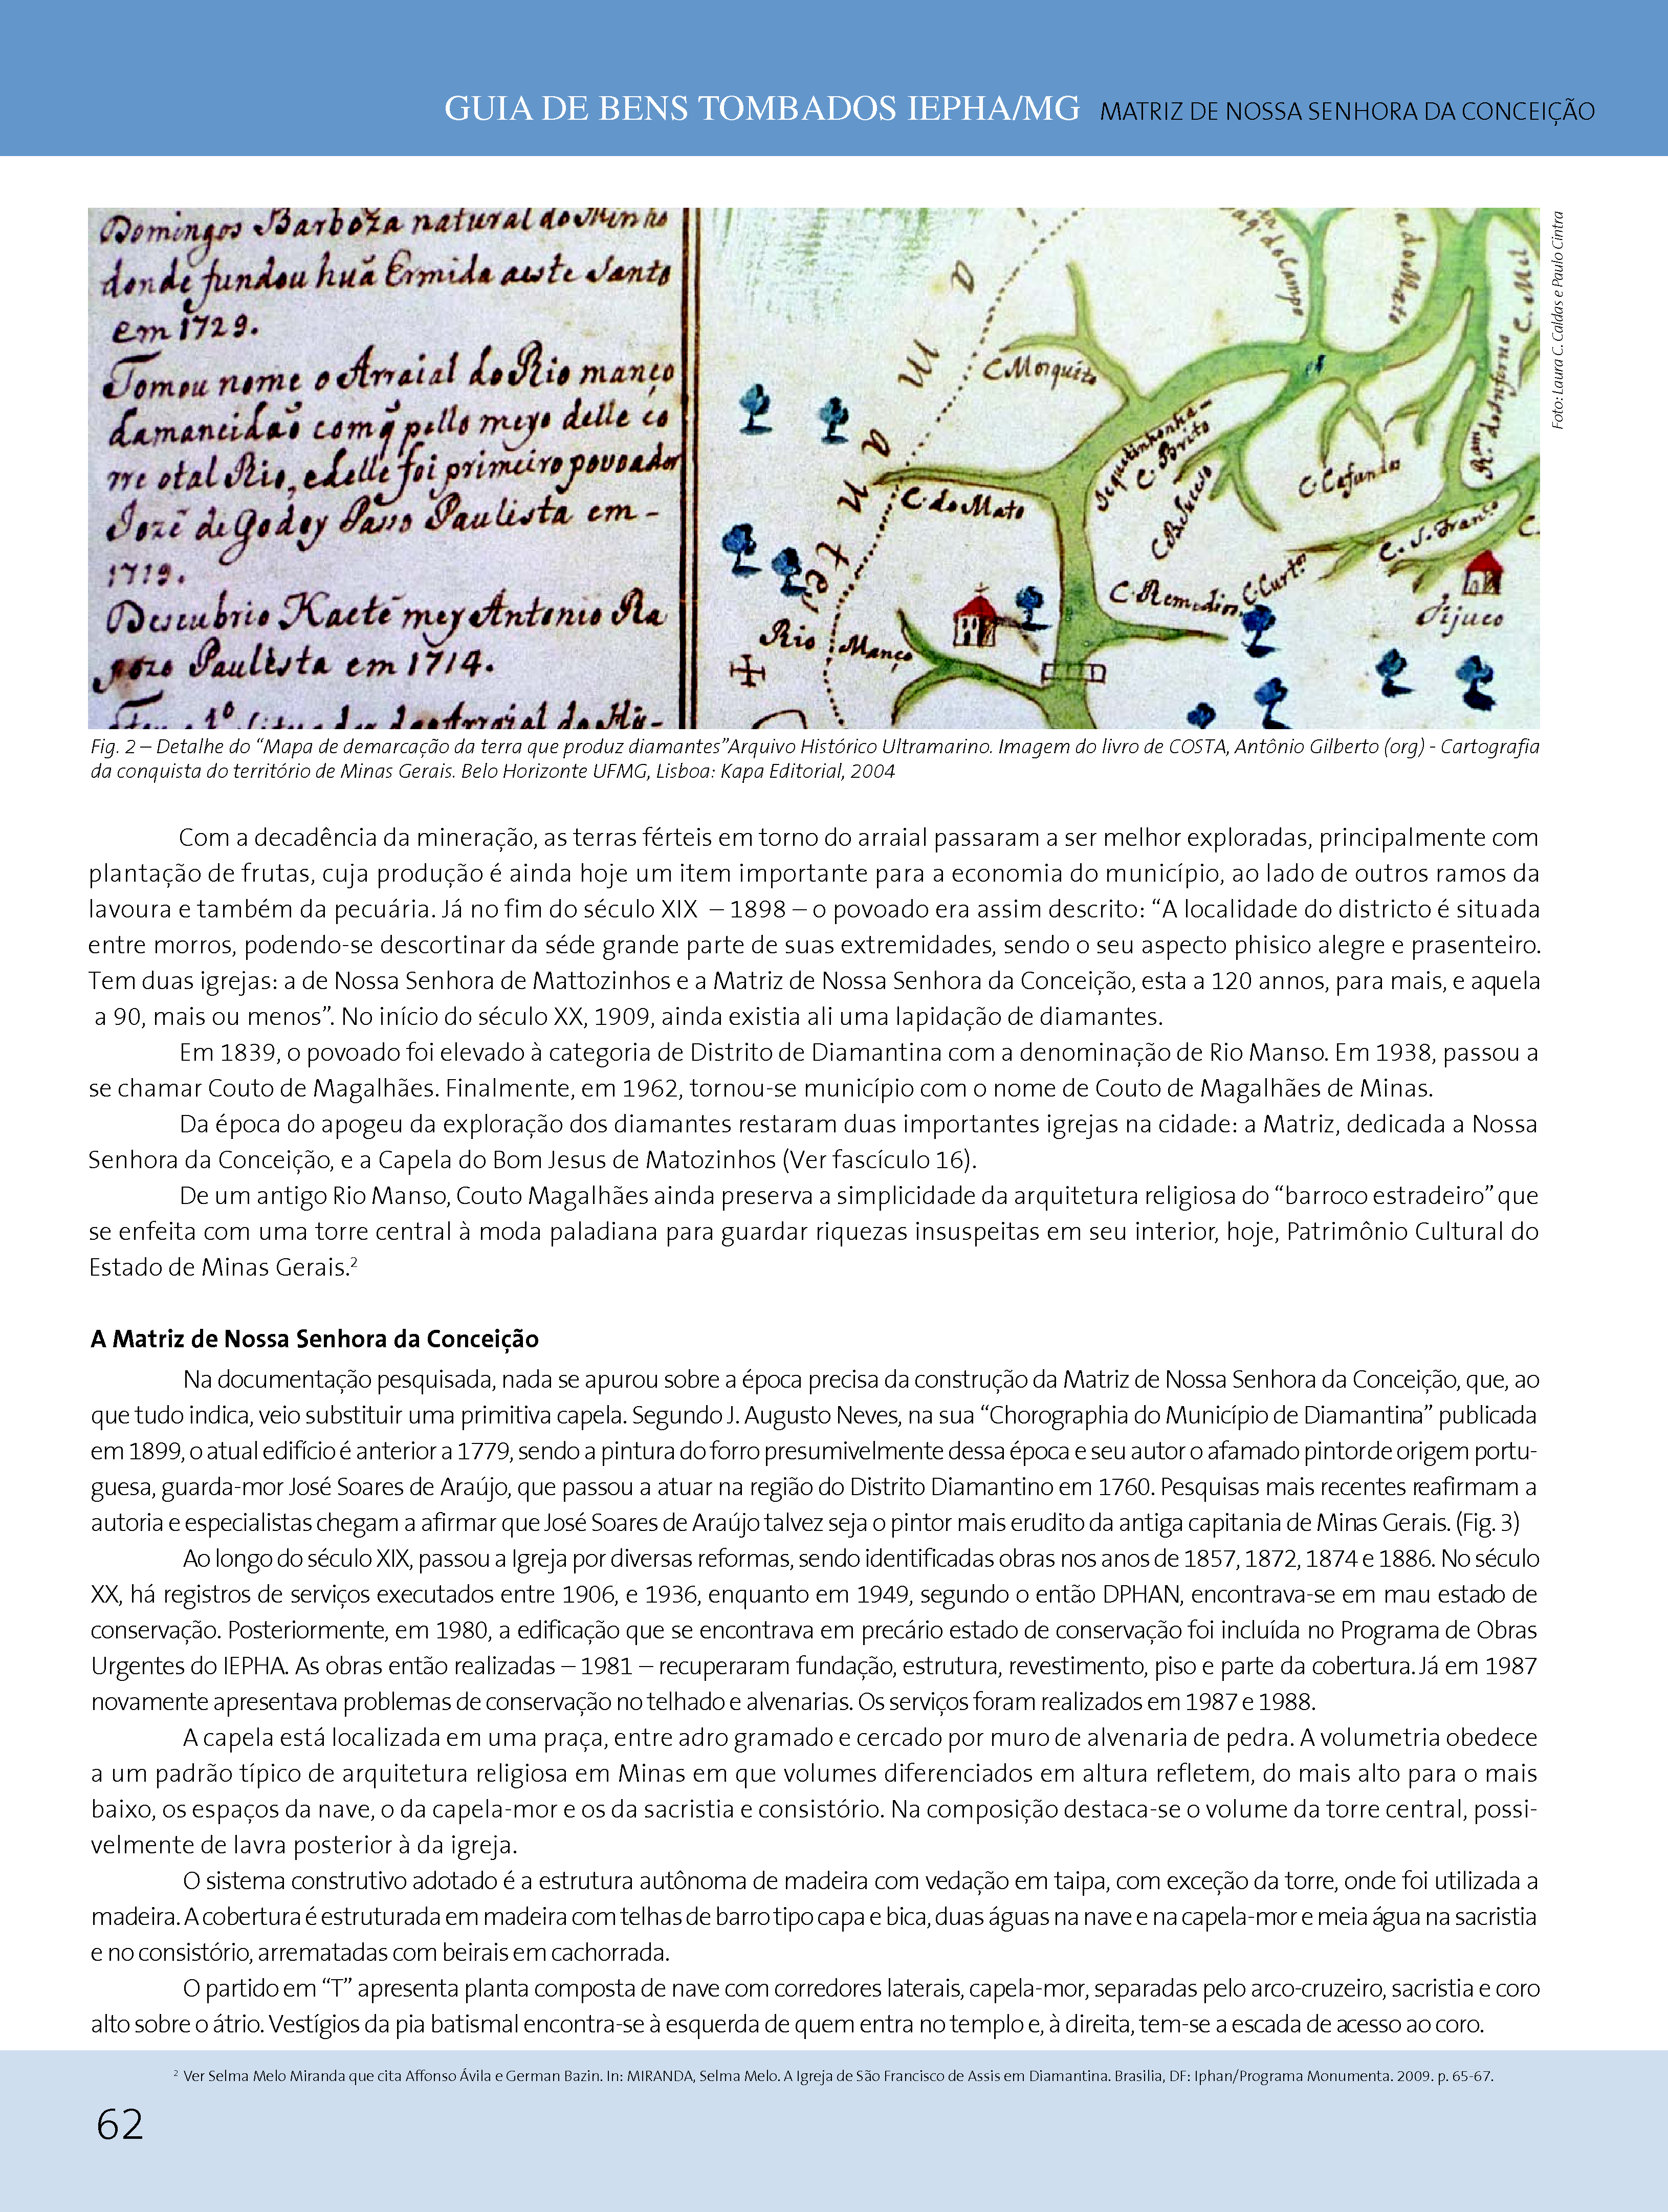 GUIA DE BENS TOMBADOS IEPHA/MG MATRIZ DE NOSSA SENHORA DA CONCEIÇÃO
Domingos Barboza natural do Minho
donde fundou huã Ermida aeste Santo
em 1729.
Tomou nome o Arraial do Rio manço
damancidaõ com q̃ pello meyo delle co
rre otal Rio, edelle foi primeiro povoador
Jozê de Godoy Passo Paulista em-
1719.
Descubrio Kaetê mey Antonio Ra
pozo Paulista em 1714.
do Campo
a do Mato
C. Mel
C. Morquito
Jequitinhonha
C. Brito
C. do Mato
C. Cafundos
R.am do Inferno
C. S. Franco
C. Remedios
C. Curto
Tijuco
Rio Manço
Foto: Laura C. Caldas e Paulo Cintra
Fig. 2 – Detalhe do “Mapa de demarcação da terra que produz diamantes”Arquivo Histórico Ultramarino. Imagem do livro de COSTA, Antônio Gilberto (org) - Cartografia
da conquista do território de Minas Gerais. Belo Horizonte UFMG, Lisboa: Kapa Editorial, 2004
Com a decadência da mineração, as terras férteis em torno do arraial passaram a ser melhor exploradas, principalmente com
plantação de frutas, cuja produção é ainda hoje um item importante para a economia do município, ao lado de outros ramos da
lavoura e também da pecuária. Já no fim do século XIX – 1898 – o povoado era assim descrito: “A localidade do districto é situada
entre morros, podendo-se descortinar da séde grande parte de suas extremidades, sendo o seu aspecto phisico alegre e prasenteiro.
Tem duas igrejas: a de Nossa Senhora de Mattozinhos e a Matriz de Nossa Senhora da Conceição, esta a 120 annos, para mais, e aquela
a 90, mais ou menos”. No início do século XX, 1909, ainda existia ali uma lapidação de diamantes.
Em 1839, o povoado foi elevado à categoria de Distrito de Diamantina com a denominação de Rio Manso. Em 1938, passou a
se chamar Couto de Magalhães. Finalmente, em 1962, tornou-se município com o nome de Couto de Magalhães de Minas.
Da época do apogeu da exploração dos diamantes restaram duas importantes igrejas na cidade: a Matriz, dedicada a Nossa
Senhora da Conceição, e a Capela do Bom Jesus de Matozinhos (Ver fascículo 16).
De um antigo Rio Manso, Couto Magalhães ainda preserva a simplicidade da arquitetura religiosa do “barroco estradeiro” que
se enfeita com uma torre central à moda paladiana para guardar riquezas insuspeitas em seu interior, hoje, Patrimônio Cultural do
Estado de Minas Gerais.²
A Matriz de Nossa Senhora da Conceição
Na documentação pesquisada, nada se apurou sobre a época precisa da construção da Matriz de Nossa Senhora da Conceição, que, ao
que tudo indica, veio substituir uma primitiva capela. Segundo J. Augusto Neves, na sua “Chorographia do Município de Diamantina” publicada
em 1899, o atual edifício é anterior a 1779, sendo a pintura do forro presumivelmente dessa época e seu autor o afamado pintor de origem portu-
guesa, guarda-mor José Soares de Araújo, que passou a atuar na região do Distrito Diamantino em 1760. Pesquisas mais recentes reafirmam a
autoria e especialistas chegam a afirmar que José Soares de Araújo talvez seja o pintor mais erudito da antiga capitania de Minas Gerais. (Fig. 3)
Ao longo do século XIX, passou a Igreja por diversas reformas, sendo identificadas obras nos anos de 1857, 1872, 1874 e 1886. No século
XX, há registros de serviços executados entre 1906, e 1936, enquanto em 1949, segundo o então DPHAN, encontrava-se em mau estado de
conservação. Posteriormente, em 1980, a edificação que se encontrava em precário estado de conservação foi incluída no Programa de Obras
Urgentes do IEPHA. As obras então realizadas – 1981 – recuperaram fundação, estrutura, revestimento, piso e parte da cobertura. Já em 1987
novamente apresentava problemas de conservação no telhado e alvenarias. Os serviços foram realizados em 1987 e 1988.
A capela está localizada em uma praça, entre adro gramado e cercado por muro de alvenaria de pedra. A volumetria obedece
a um padrão típico de arquitetura religiosa em Minas em que volumes diferenciados em altura refletem, do mais alto para o mais
baixo, os espaços da nave, o da capela-mor e os da sacristia e consistório. Na composição destaca-se o volume da torre central, possi-
velmente de lavra posterior à da igreja.
O sistema construtivo adotado é a estrutura autônoma de madeira com vedação em taipa, com exceção da torre, onde foi utilizada a
madeira. A cobertura é estruturada em madeira com telhas de barro tipo capa e bica, duas águas na nave e na capela-mor e meia água na sacristia
e no consistório, arrematadas com beirais em cachorrada.
O partido em “T” apresenta planta composta de nave com corredores laterais, capela-mor, separadas pelo arco-cruzeiro, sacristia e coro
alto sobre o átrio. Vestígios da pia batismal encontra-se à esquerda de quem entra no templo e, à direita, tem-se a escada de acesso ao coro.
² Ver Selma Melo Miranda que cita Affonso Ávila e German Bazin. In: MIRANDA, Selma Melo. A Igreja de São Francisco de Assis em Diamantina. Brasilia, DF: Iphan/Programa Monumenta. 2009. p. 65-67.
62